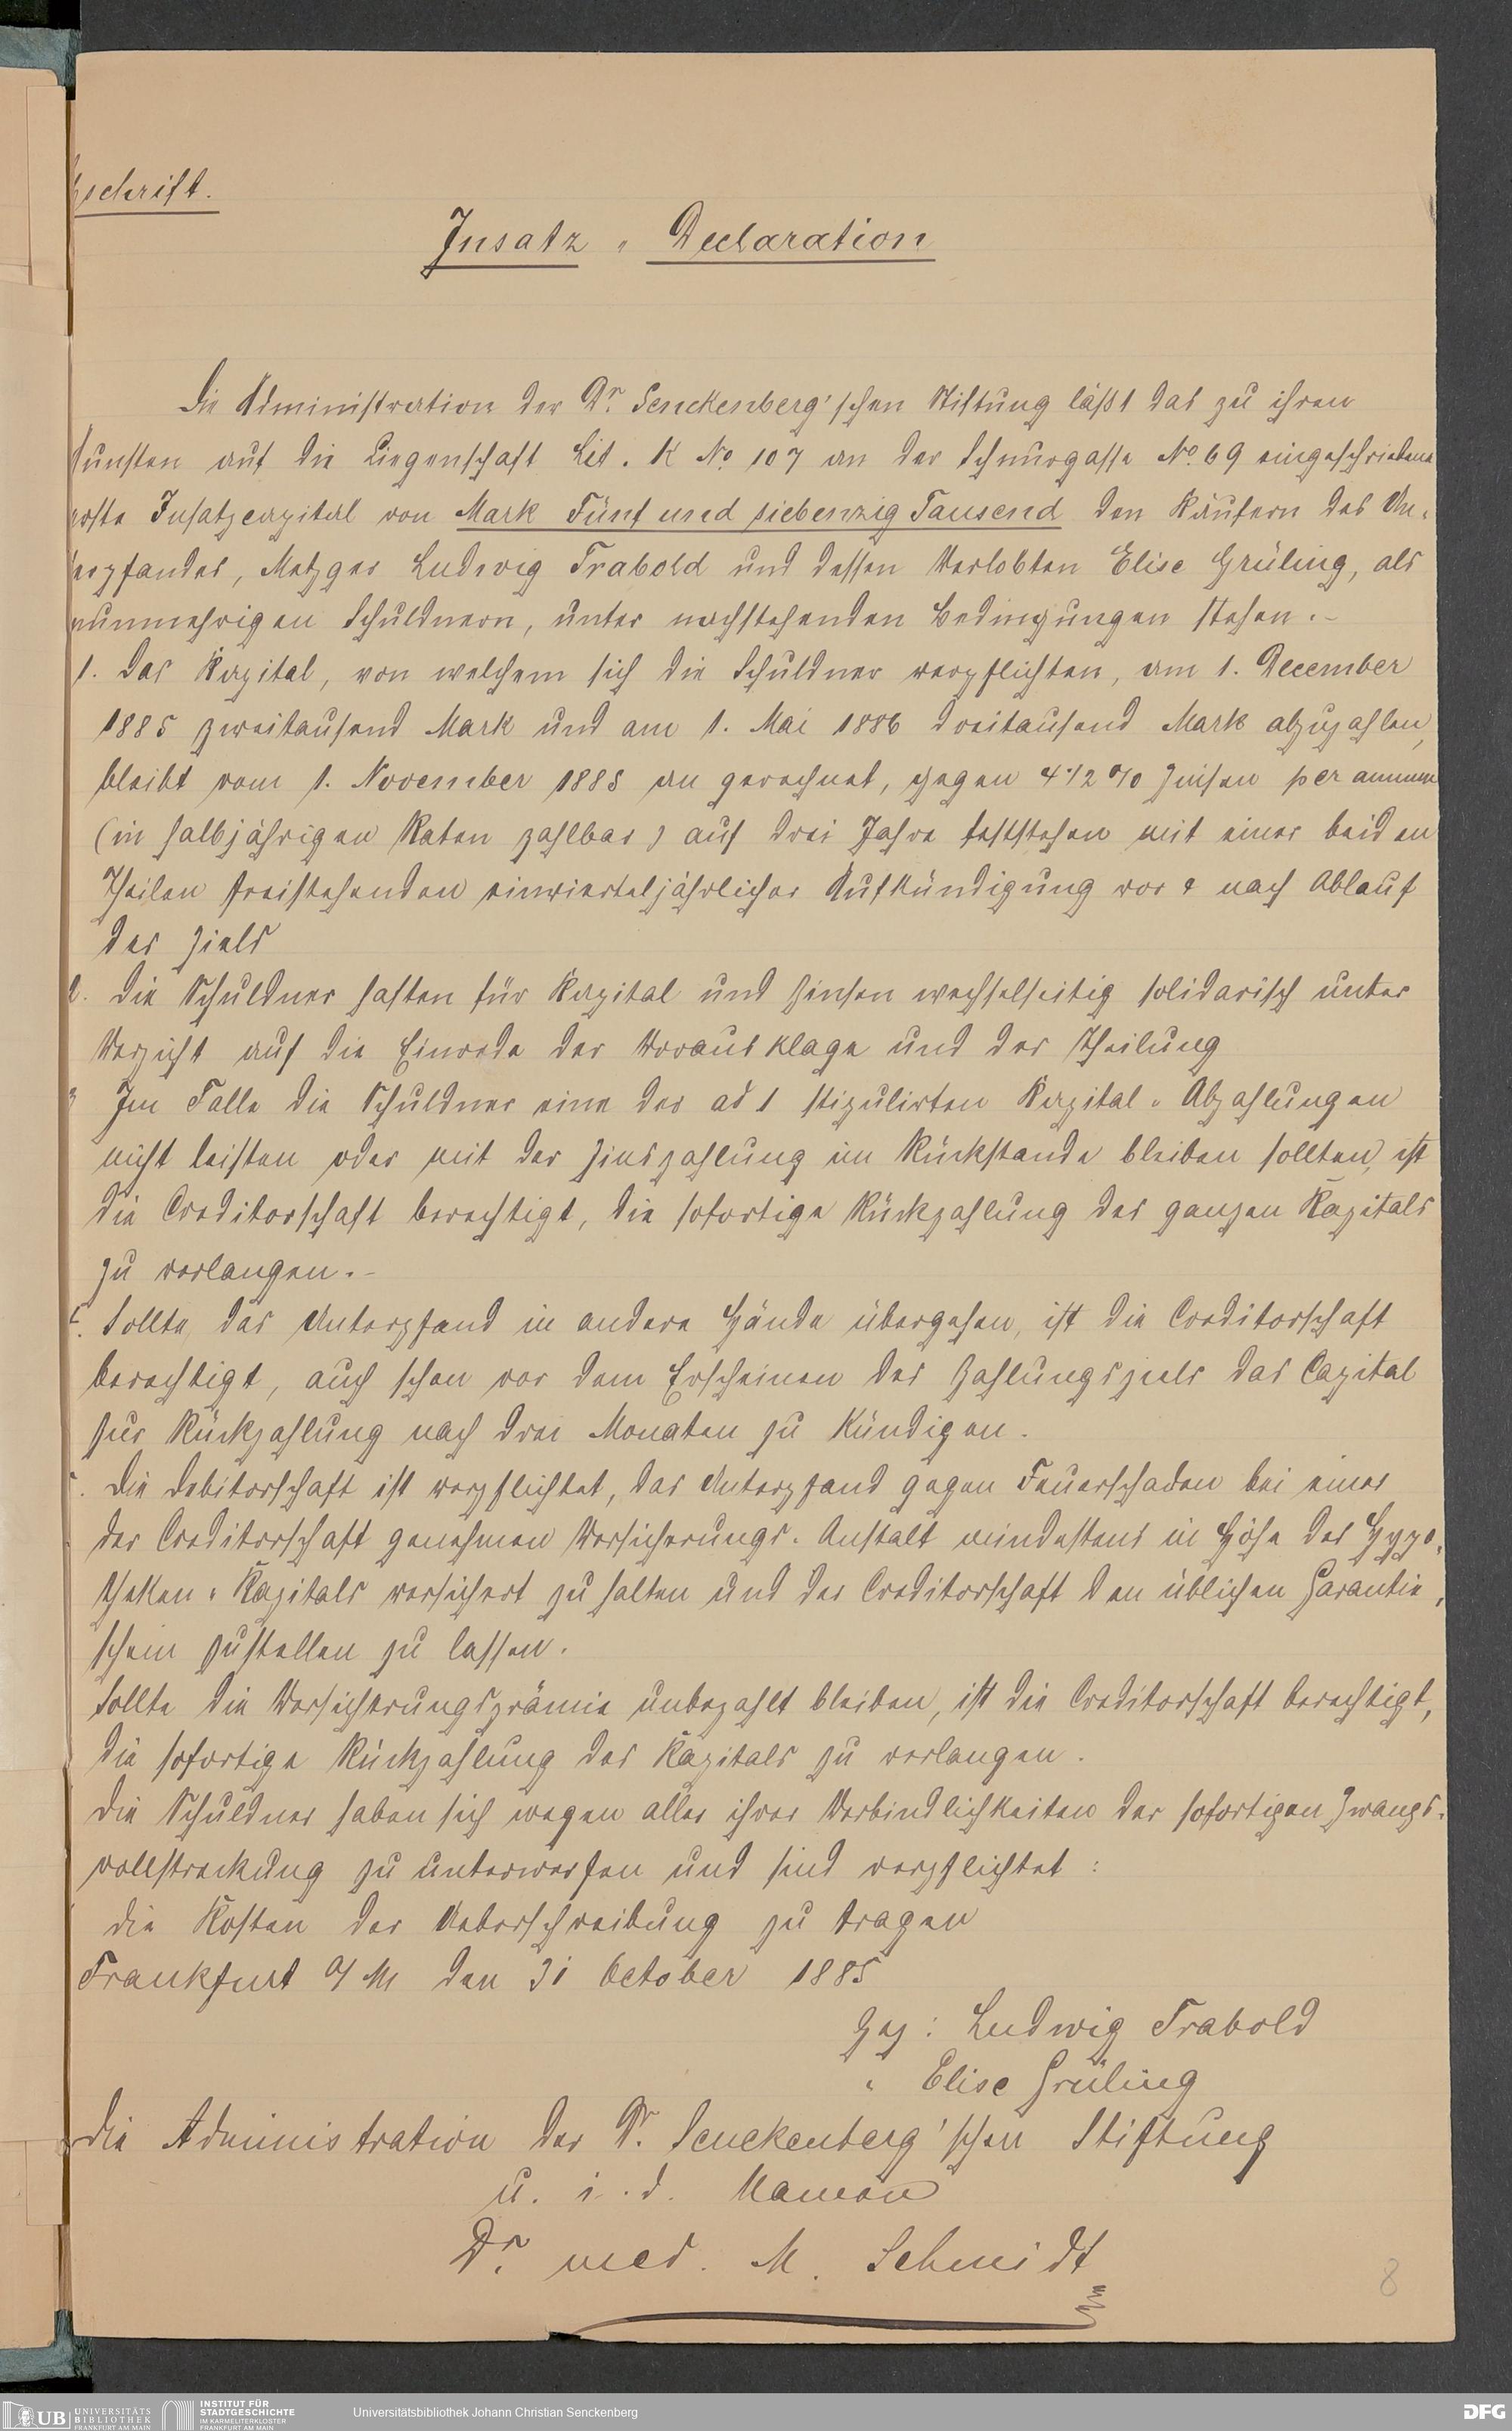 schrift.
Insatz-Declaration
Die Administration der Dr. Senckenberg'schen Stiftung läßt das zu ihren
Gunsten auf die Liegenschaft Lit. K No 107 an der Schnurgasse No. 69 eingeschriebene
erste Insatzcapital von Mark Fünf und siebenzig Tausend den Käufern des Un-
terpfandes, Metzger Ludwig Trabold und dessen Verlobten Elise Grüling, als
nunmehrigen Schuldnern, unter nachstehenden Bedingungen stehen.-
1. Das Kapital, von welchem sich die Schuldner verpflichten, am 1. December
1885 zweitausend Mark und am 1. Mai 1886 dreitausend Mark abzuzahlen,
bleibt vom 1. November 1885 an gerechnet, gegen 4 1/2 % Zinsen per annum
(in halbjährigen Raten zahlbar) auf drei Jahre feststehen mit einer beiden
Theilen freistehenden einvierteljährlicher Aufkündigung vor & nach Ablauf
des Ziels
2. Die Schuldner haften für Kapital und Zinsen wechselseitig solidarisch unter
Verzicht auf die Einrede der Vorausklage und der Theilung
3 Im Falle die Schuldner eine der ad 1 stipulirten Kapital-Abzahlungen
nicht leisten oder mit der Zinszahlung im Rückstande bleiben sollten, ist
die Creditorschaft berechtigt, die sofortige Rückzahlung des ganzen Kapitals
zu verlangen.-
Sollte das Unterpfand in andere Hände übergehen, ist die Creditorschaft
berechtigt, auch schon vor dem Erscheinen des Zahlungsziels das Capital
zur Rückzahlung nach drei Monaten zu kündigen.
Die Debitorschaft ist verpflichtet, das Unterpfand gegen Feuerschaden bei einer
der Creditorschaft genehmen Versicherungs-Anstalt mindestens in Höhe des Hypo-
theken-Kapitals versichert zu halten und der Creditorschaft den üblichen Garantie-
schein zustellen zu lassen.
Sollte die Versichrungsprämie unbezahlt bleiben, ist die Creditorschaft berechtigt,
die sofortige Rückzahlung des Kapitals zu verlangen.
Die Schuldner haben sich wegen aller ihrer Verbindlichkeiten der sofortigen Zwangs-
vollstreckung zu unterwerfen und sind verpflichtet:
die Kosten der Ueberschreibung zu tragen
Frankfurt a/M den 31 October 1885
Gez: Ludwig Trabold
" Elise Grüling
Die Administration der Dr. Senckenberg'schen Stiftung
u. i. d. Namen
Dr. med. M. Schmidt
8
UB UNIVERSITÄTS
BIBLIOTHEK
FRANKFURT AM MAIN
INSTITUT FÜR
STADTGESCHICHTE
IM KARMELITERKLOSTER
FRANKFURT AM MAIN
Universitätsbibliothek Johann Christian Senckenberg
DFG